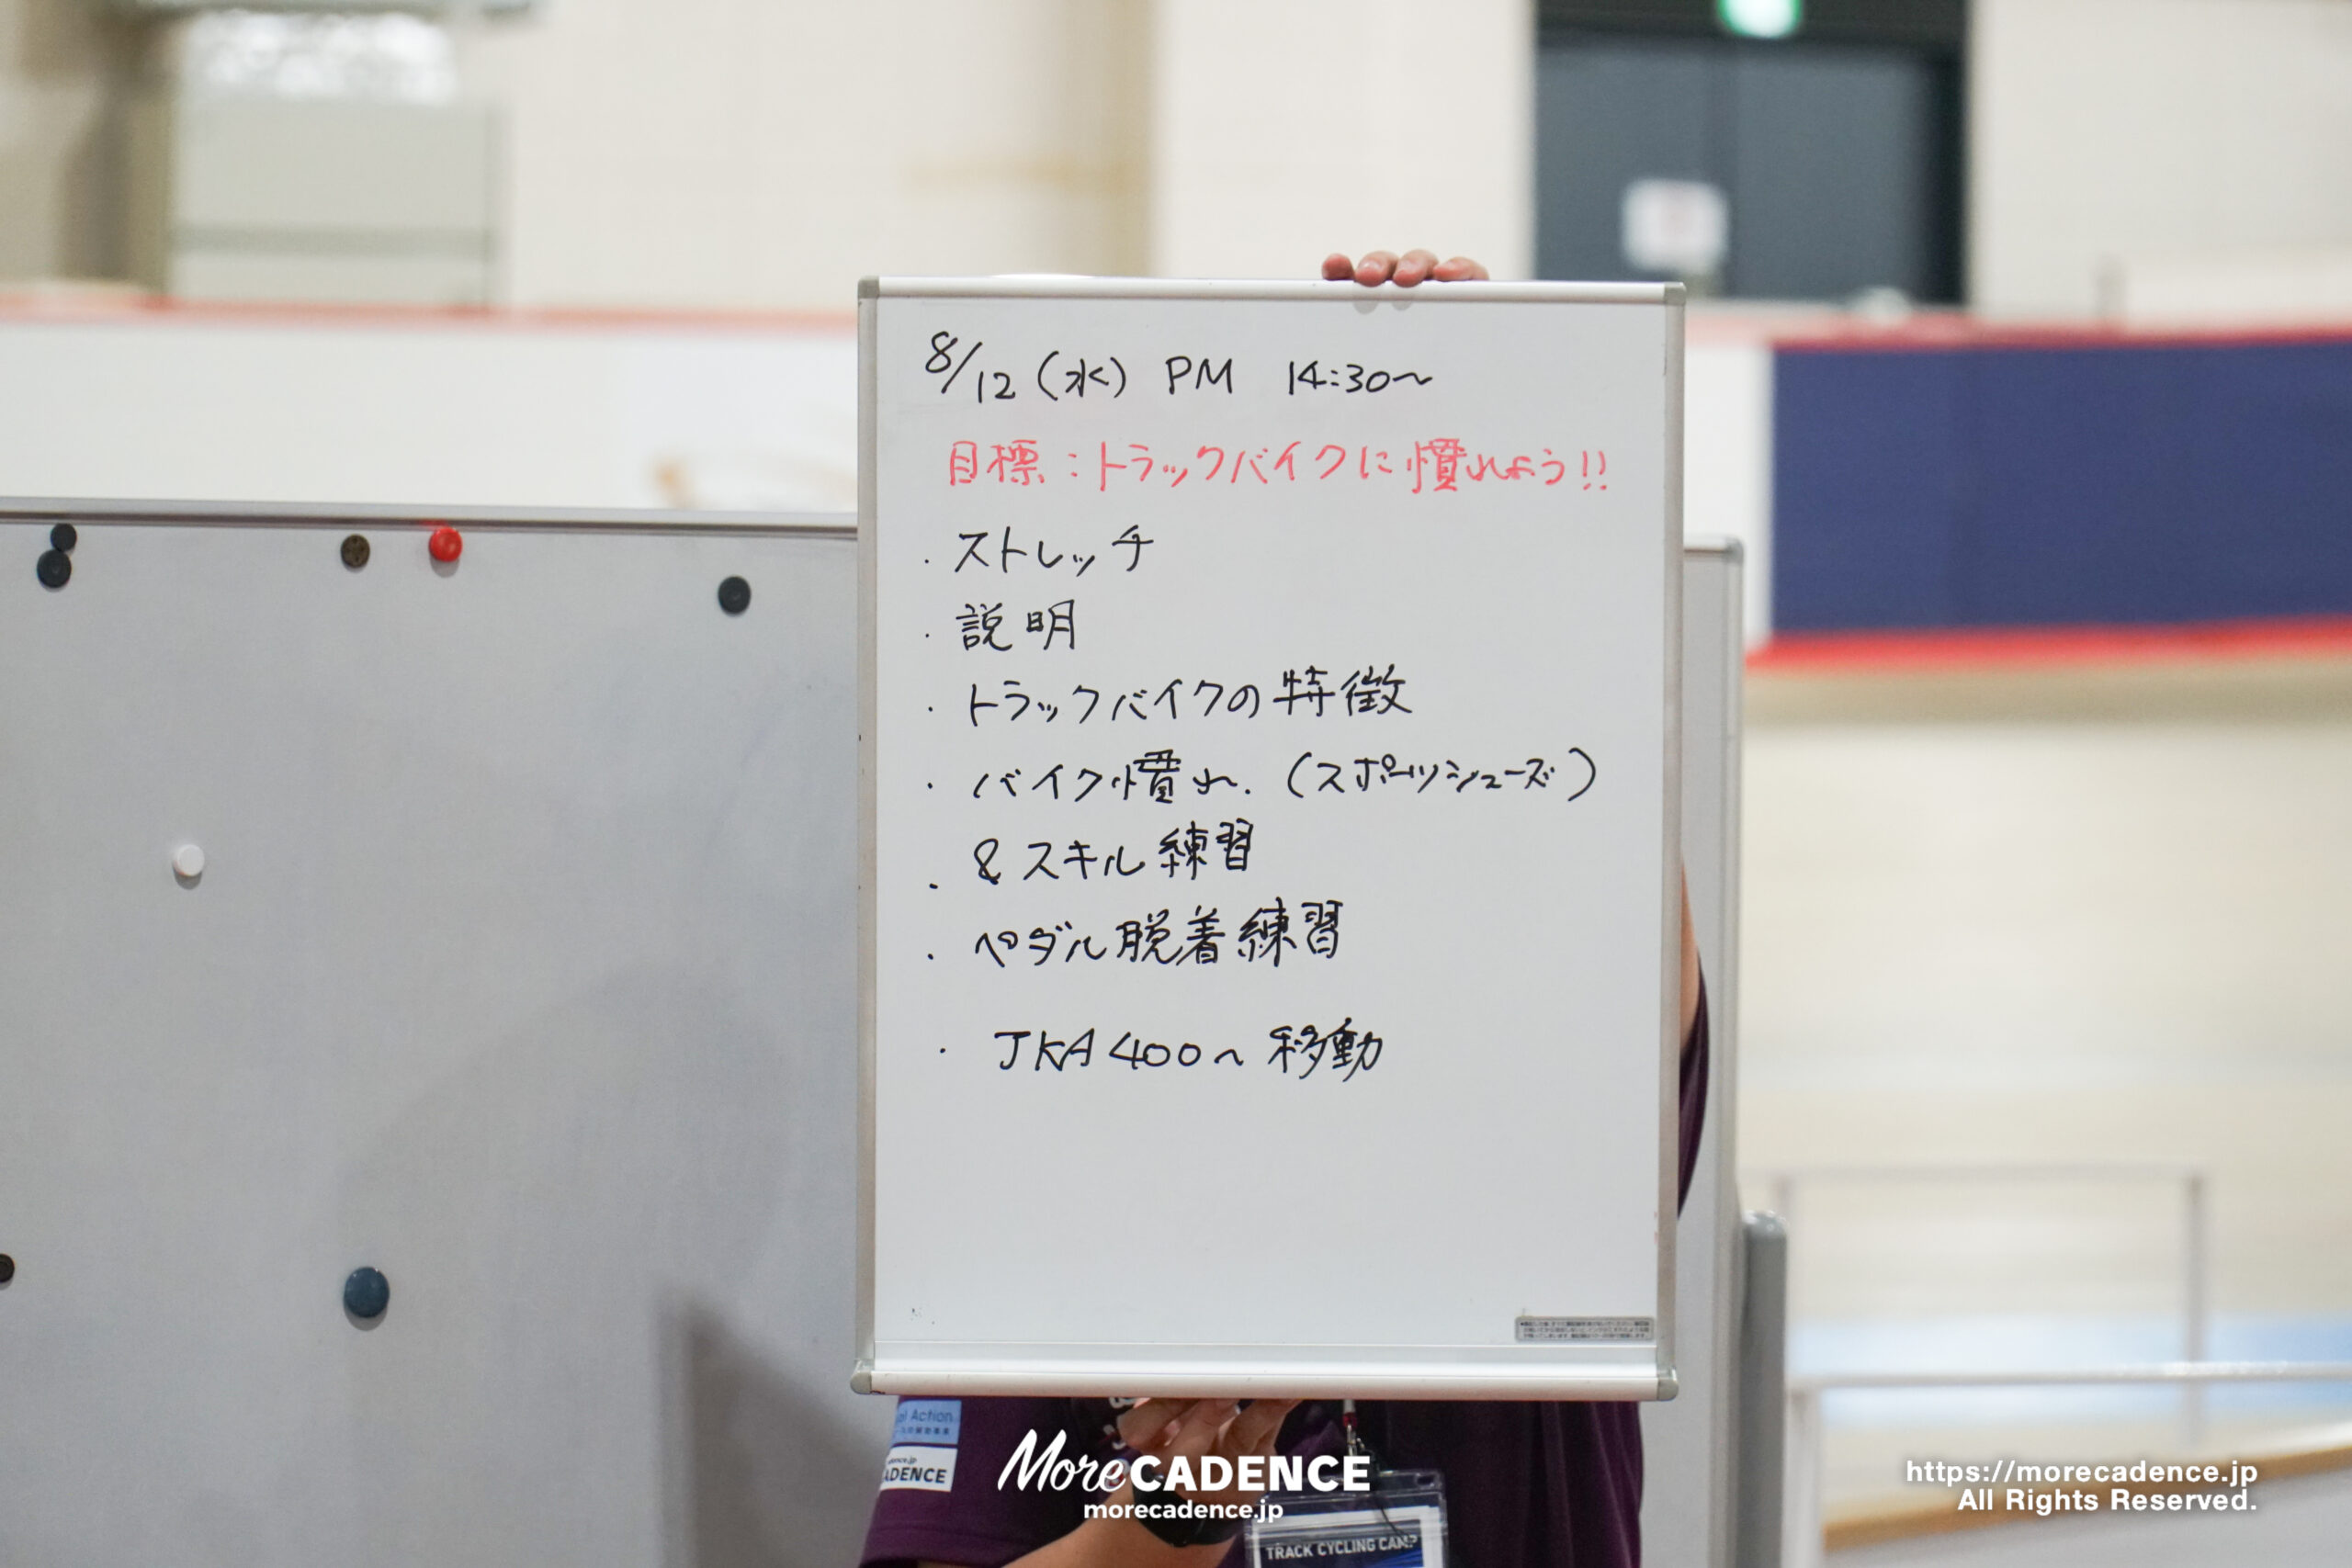 8/12(水) PM 14:30〜
目標:トラックバイクに慣れよう!!
・ストレッチ
・説明
・トラックバイクの特徴
・バイク慣れ.(スポーツシューズ)
・&スキル練習
・ペダル脱着練習
・JKA400へ移動
Action
ADENCE
More CADENCE
morecadence.jp
TRACK CYCLING CAMP
https://morecadence.jp
All Rights Reserved.